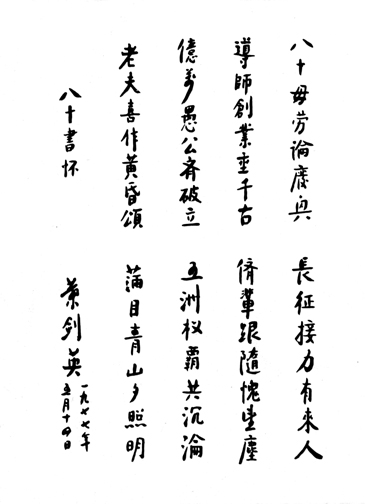 八十毋勞論廢興　長征接力有來人
導師創業垂千古　儕輩跟隨愧望塵
億萬愚公齊破立　五洲权霸共沉淪
老夫喜作黄昏頌　滿目青山夕照明
八十書怀　葉剑英
一九七七年
五月十四日